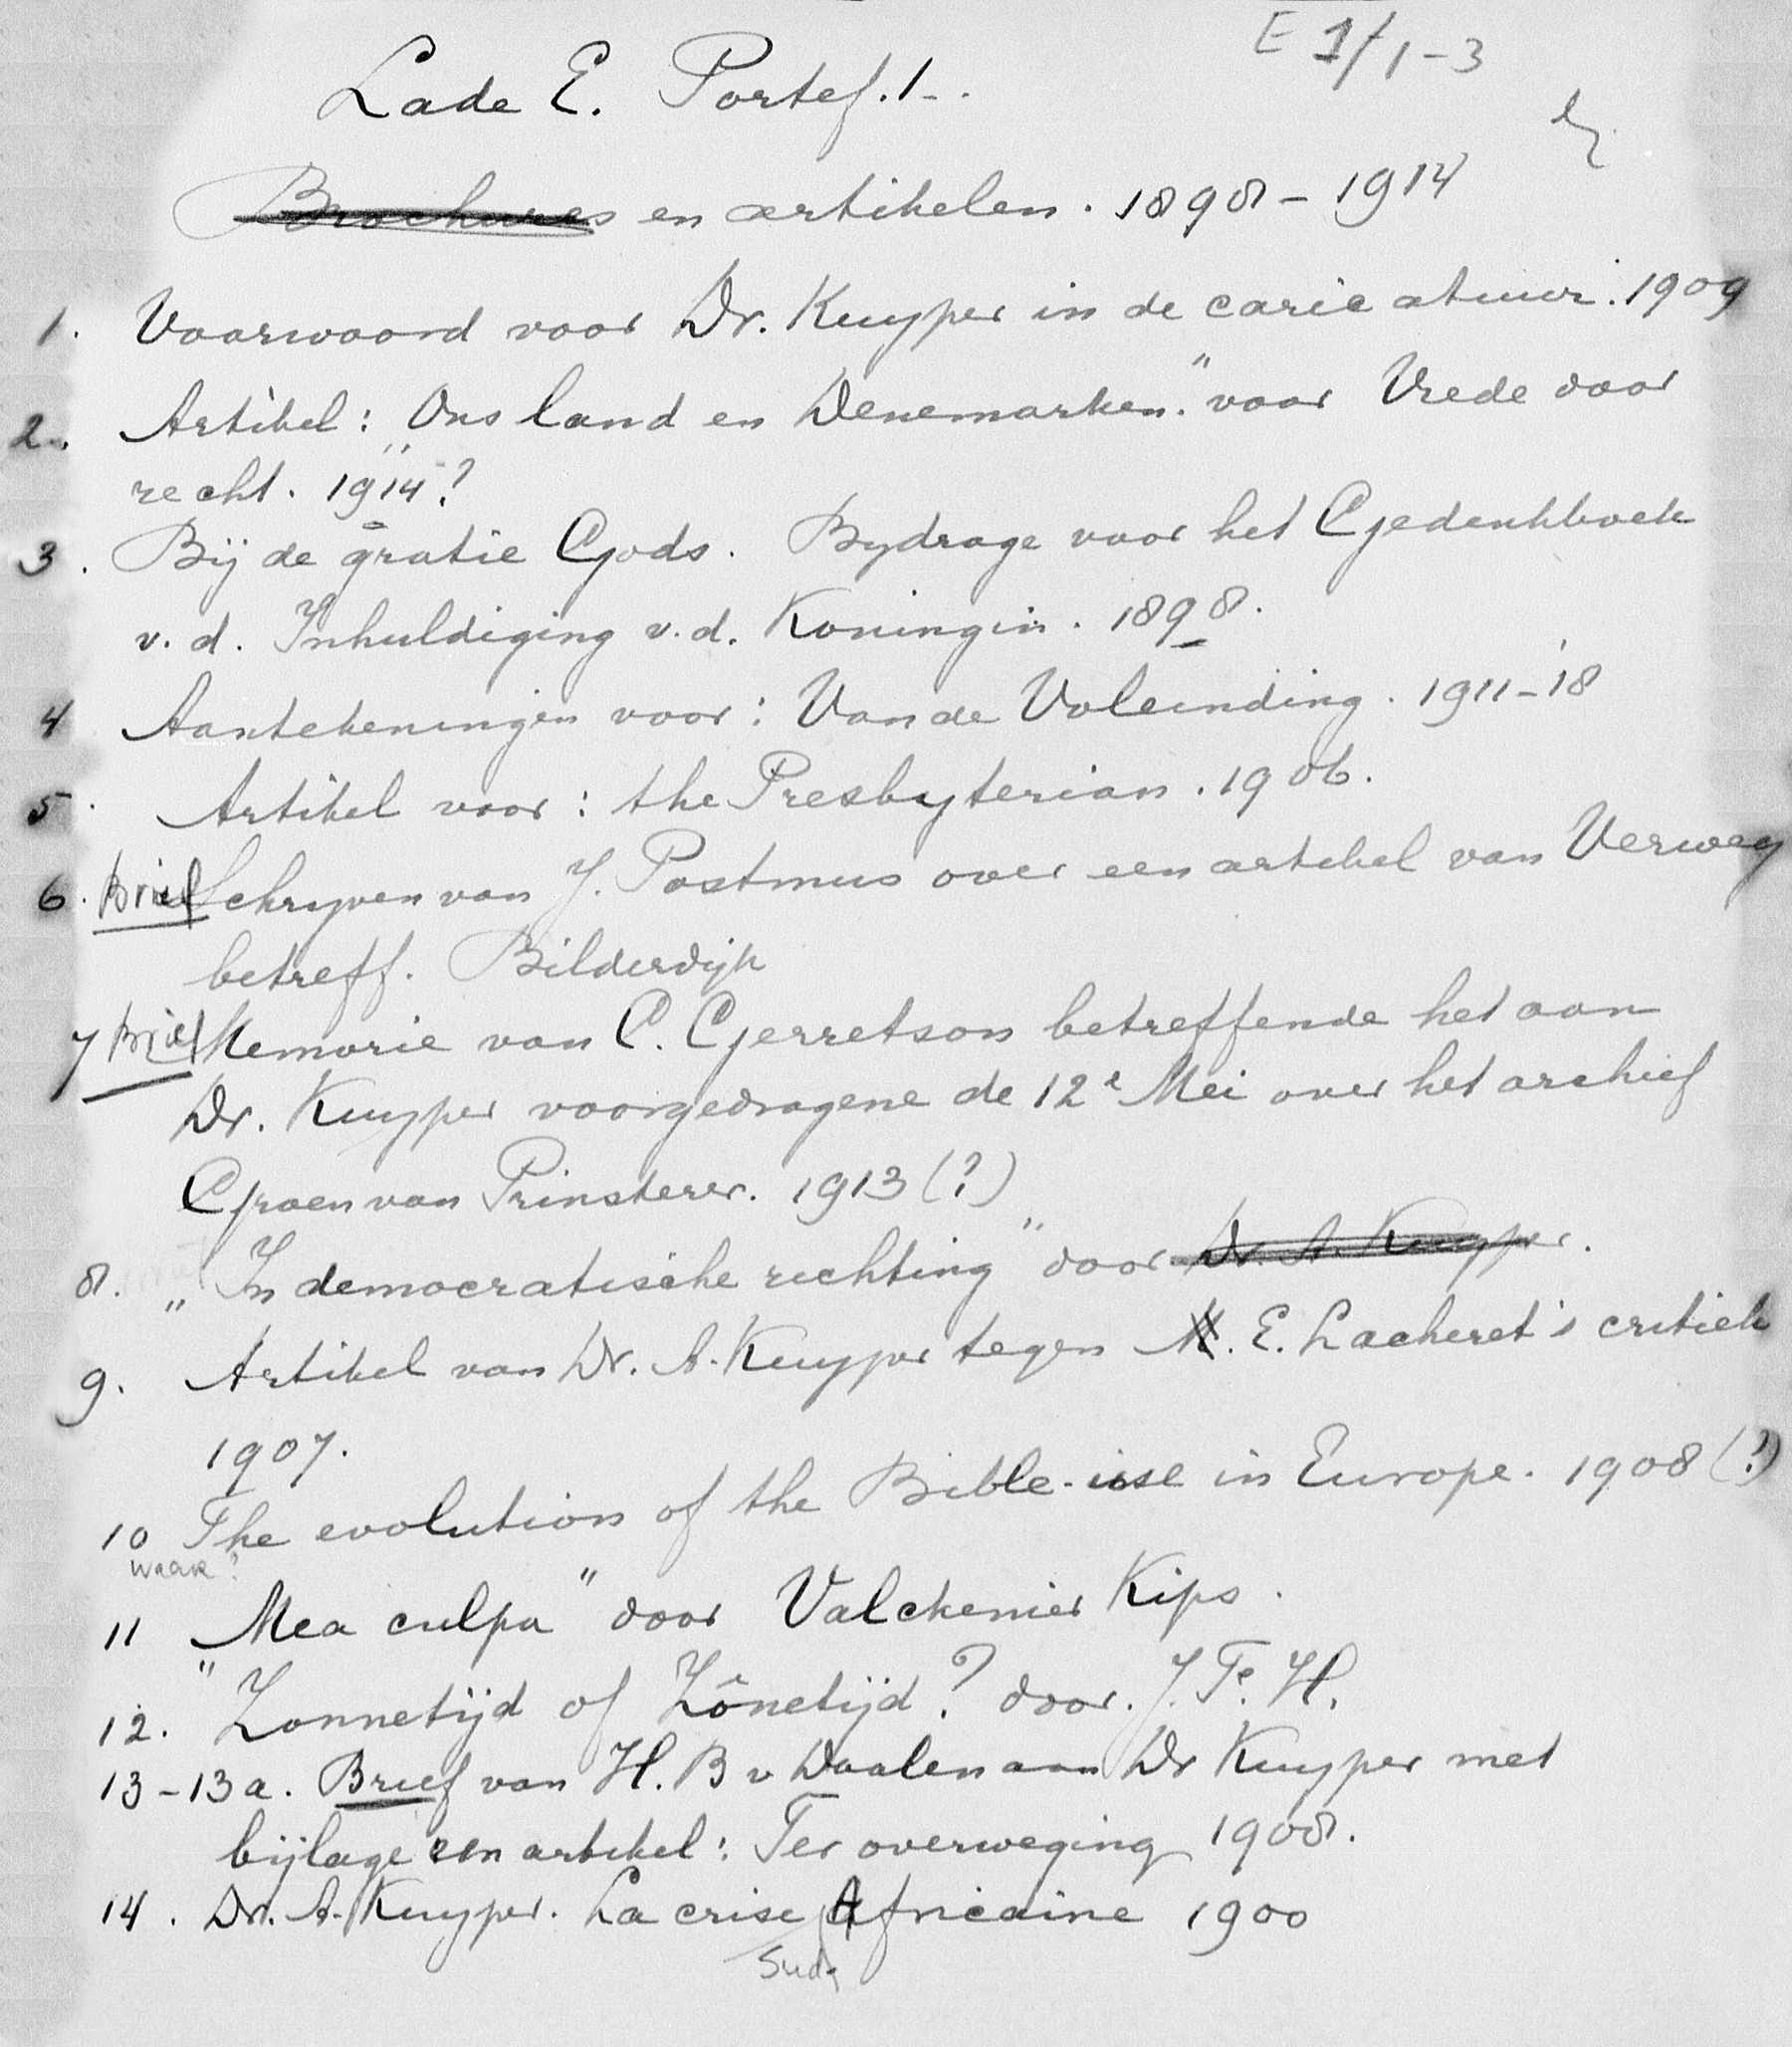 E 1/1-3
Lade E. Portef. 1-.
Brochures en artikelen. 1898-1914
1. Voorwoord voor Dr. Kuyper in de caricatuur. 1909
2. Artikel: "Ons land en Denemarken." voor Vrede door
recht. 1914?
3. Bij de gratie Gods. Bydrage voor het Gedenkboek
v. d. Inhuldiging v.d. Koningin. 1898.
4 Aantekeningen voor: Van de Voleinding. 1911-'18
5. Artikel voor: the Presbyterian. 1906.
6. Brief Schryven van J. Postmus over een artikel van Verwey
betreff. Bilderdijk
7 Brief Memorie van C. Gerretson betreffende het aan
Dr. Kuyper voorgedragene de 12e Mei over het archief
Groen van Prinsterer. 1913 (?)
8. "In democratische richting" door Dr. A. Kuyper.
9. Artikel van Dr. A. Kuyper tegen M. E. Lacheret's critiek
1907.
10 The evolution of the Bible-use in Europe. 1908 (?)
waar?
11 "Mea culpa" door Valckenier Kips.
12. Zonnetijd of Zônetijd? door. J. Te. H.
13-13a. Brief van H. B v Daalen aan Dr Kuyper met
bijlage een artikel: Ter overweging 1908.
14. Dr. A. Kuyper. La crise Africaine 1900
Sud-